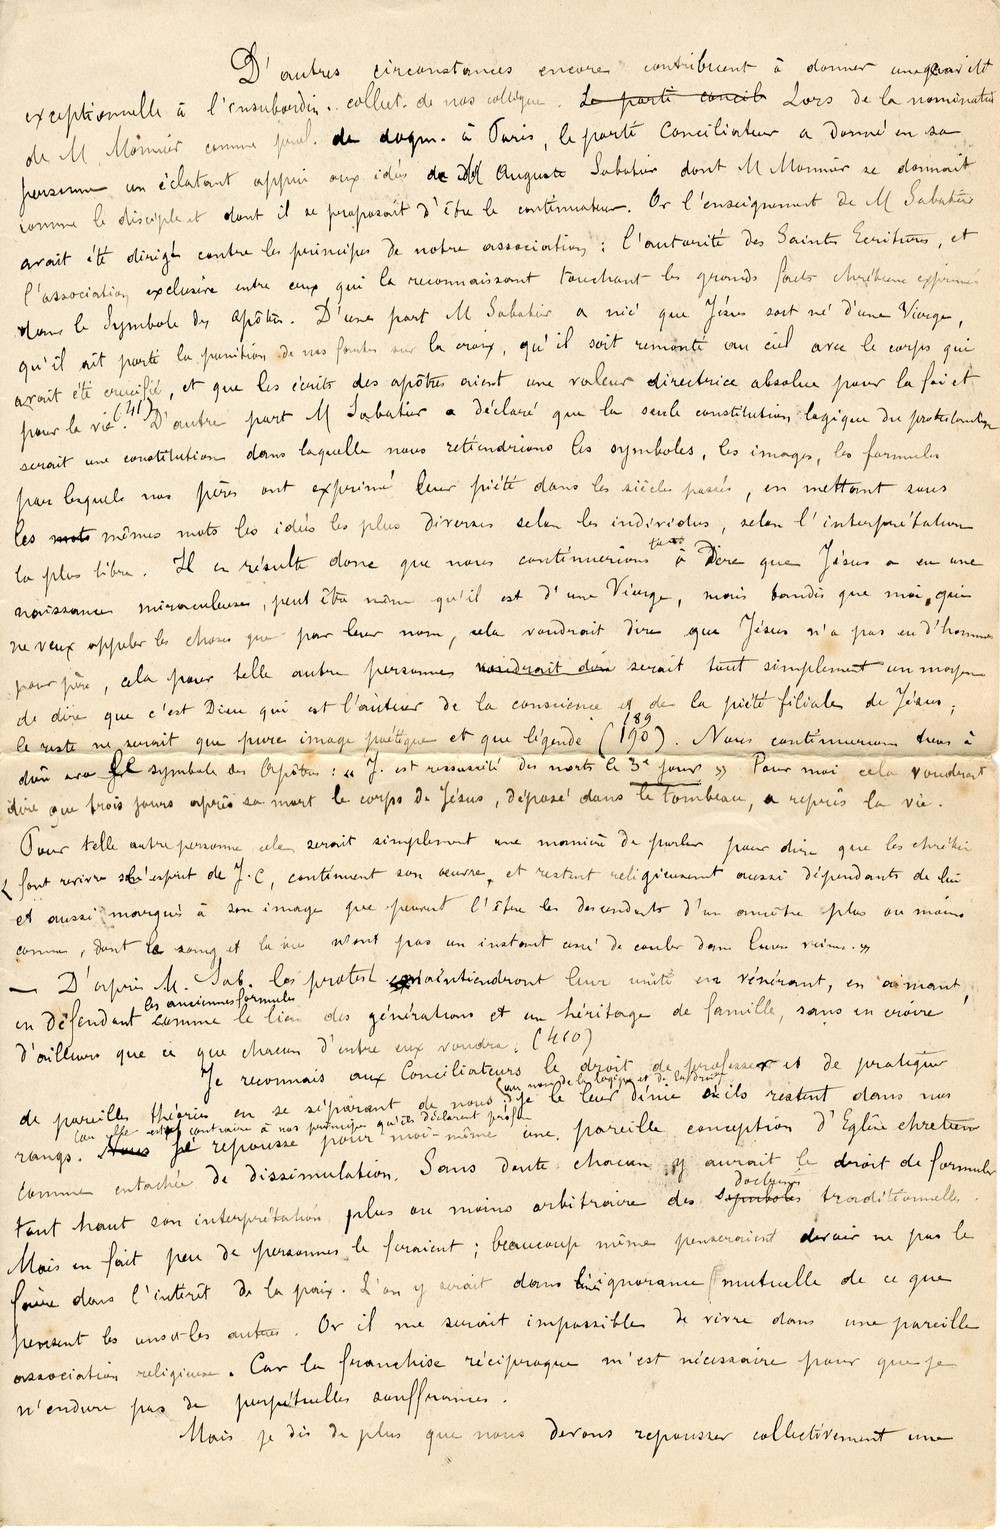 D'autres circonstances encore contribuent à donner une gravité
exceptionnelle à l'insubordin. collect. de nos collègue. Le parti concil. Lors de la nomination
de M. Monnier comme prof. de dogm. à Paris, le parti Conciliateur a donné en sa
personne un éclatant appui aux idées de M Auguste Sabatier dont M Monnier se donnait
comme le disciple et dont il se proposait d'être le continuateur. Or l'enseignement de M Sabatier
avait été dirigé contre les principes de notre association : l'autorité des Saintes Ecritures, et
l'association exclusive entre ceux qui la reconnaissent touchant les grands faits chrétiens exprimés
dans le Symbole des Apôtres. D'une part M Sabatier a nié que Jésus soit né d'une Vierge,
qu'il ait porté la punition de nos fautes sur la croix, qu'il soit remonté au ciel avec le corps qui
avait été crucifié, et que les écrits des apôtres aient une valeur directrice absolue pour la foi et
pour la vie. (411) D'autre part M Sabatier a déclaré que la seule constitution logique du protestantisme
serait une constitution dans laquelle nous retiendrions les symboles, les images, les formules
par lesquels nos pères ont exprimé leur piété dans les siècles passés, en mettant sous
les mots mêmes mots les idées les plus diverses selon les individus, selon l'interprétation
la plus libre. Il en résulte donc que nous continuerions tous à dire que Jésus a eu une
naissance miraculeuse, peut être même qu'il est d'une Vierge, mais tandis que moi, qui
ne veux appeler les choses que par leur nom, cela voudrait dire que Jésus n'a pas eu d'homme
pour père, cela pour telle autre personne voudrait dire serait tout simplement un moyen
de dire que c'est Dieu qui est l'auteur de la conscience et de la piété filiale de Jésus;
le reste ne serait que pure image poétique et que légende (189 190). Nous continuerions tous à
dire avec le symbole des Apôtres : « J. est ressuscité des morts le 3e jour » Pour moi cela voudrait
dire que trois jours après sa mort le corps de Jésus, déposé dans le tombeau, a repris la vie.
Pour telle autre personne cela serait simplement une manière de parler pour dire que les chrétiens
« font revivre l'esprit de J.C, continuent son œuvre, et restent religieusement aussi dépendants de lui
et aussi marqués à son image que peuvent l'être les descendants d'un ancêtre plus ou moins
connu, dont le sang et la vie n'ont pas un instant cessé de couler dans leurs veines. »
— D'après M. Sab. les protest maintiendront leur unité en vénérant, en aimant,
en défendant les anciennes formules comme le lien des générations et un héritage de famille, sans en croire
d'ailleurs que ce que chacun d'entre eux voudra. (410)
Je reconnais aux Conciliateurs le droit de professer et de pratiquer
de pareilles théories en se séparant de nous (au nom de la logique et de la droiture) je le leur dénie s'ils restent dans nos
rangs. (car elle est contraire à nos principes qu'ils déclarent professer Nous Je repousse pour moi-même une pareille conception d'Eglise chrétienne
comme entachée de dissimulation. Sans doute chacun y aurait le droit de formuler
tout haut son interprétation plus ou moins arbitraire des symboles doctrines traditionnelles.
Mais en fait peu de personnes le feraient; beaucoup même penseraient devoir ne pas le
faire dans l'intérêt de la paix. L'on y serait dans l'ignorance mutuelle de ce que
pensent les uns et les autres. Or il me serait impossible de vivre dans une pareille
association religieuse. Car la franchise réciproque m'est nécessaire pour que je
n'endure pas de perpétuelles souffrances.
Mais je dis de plus que nous devons repousser collectivement une